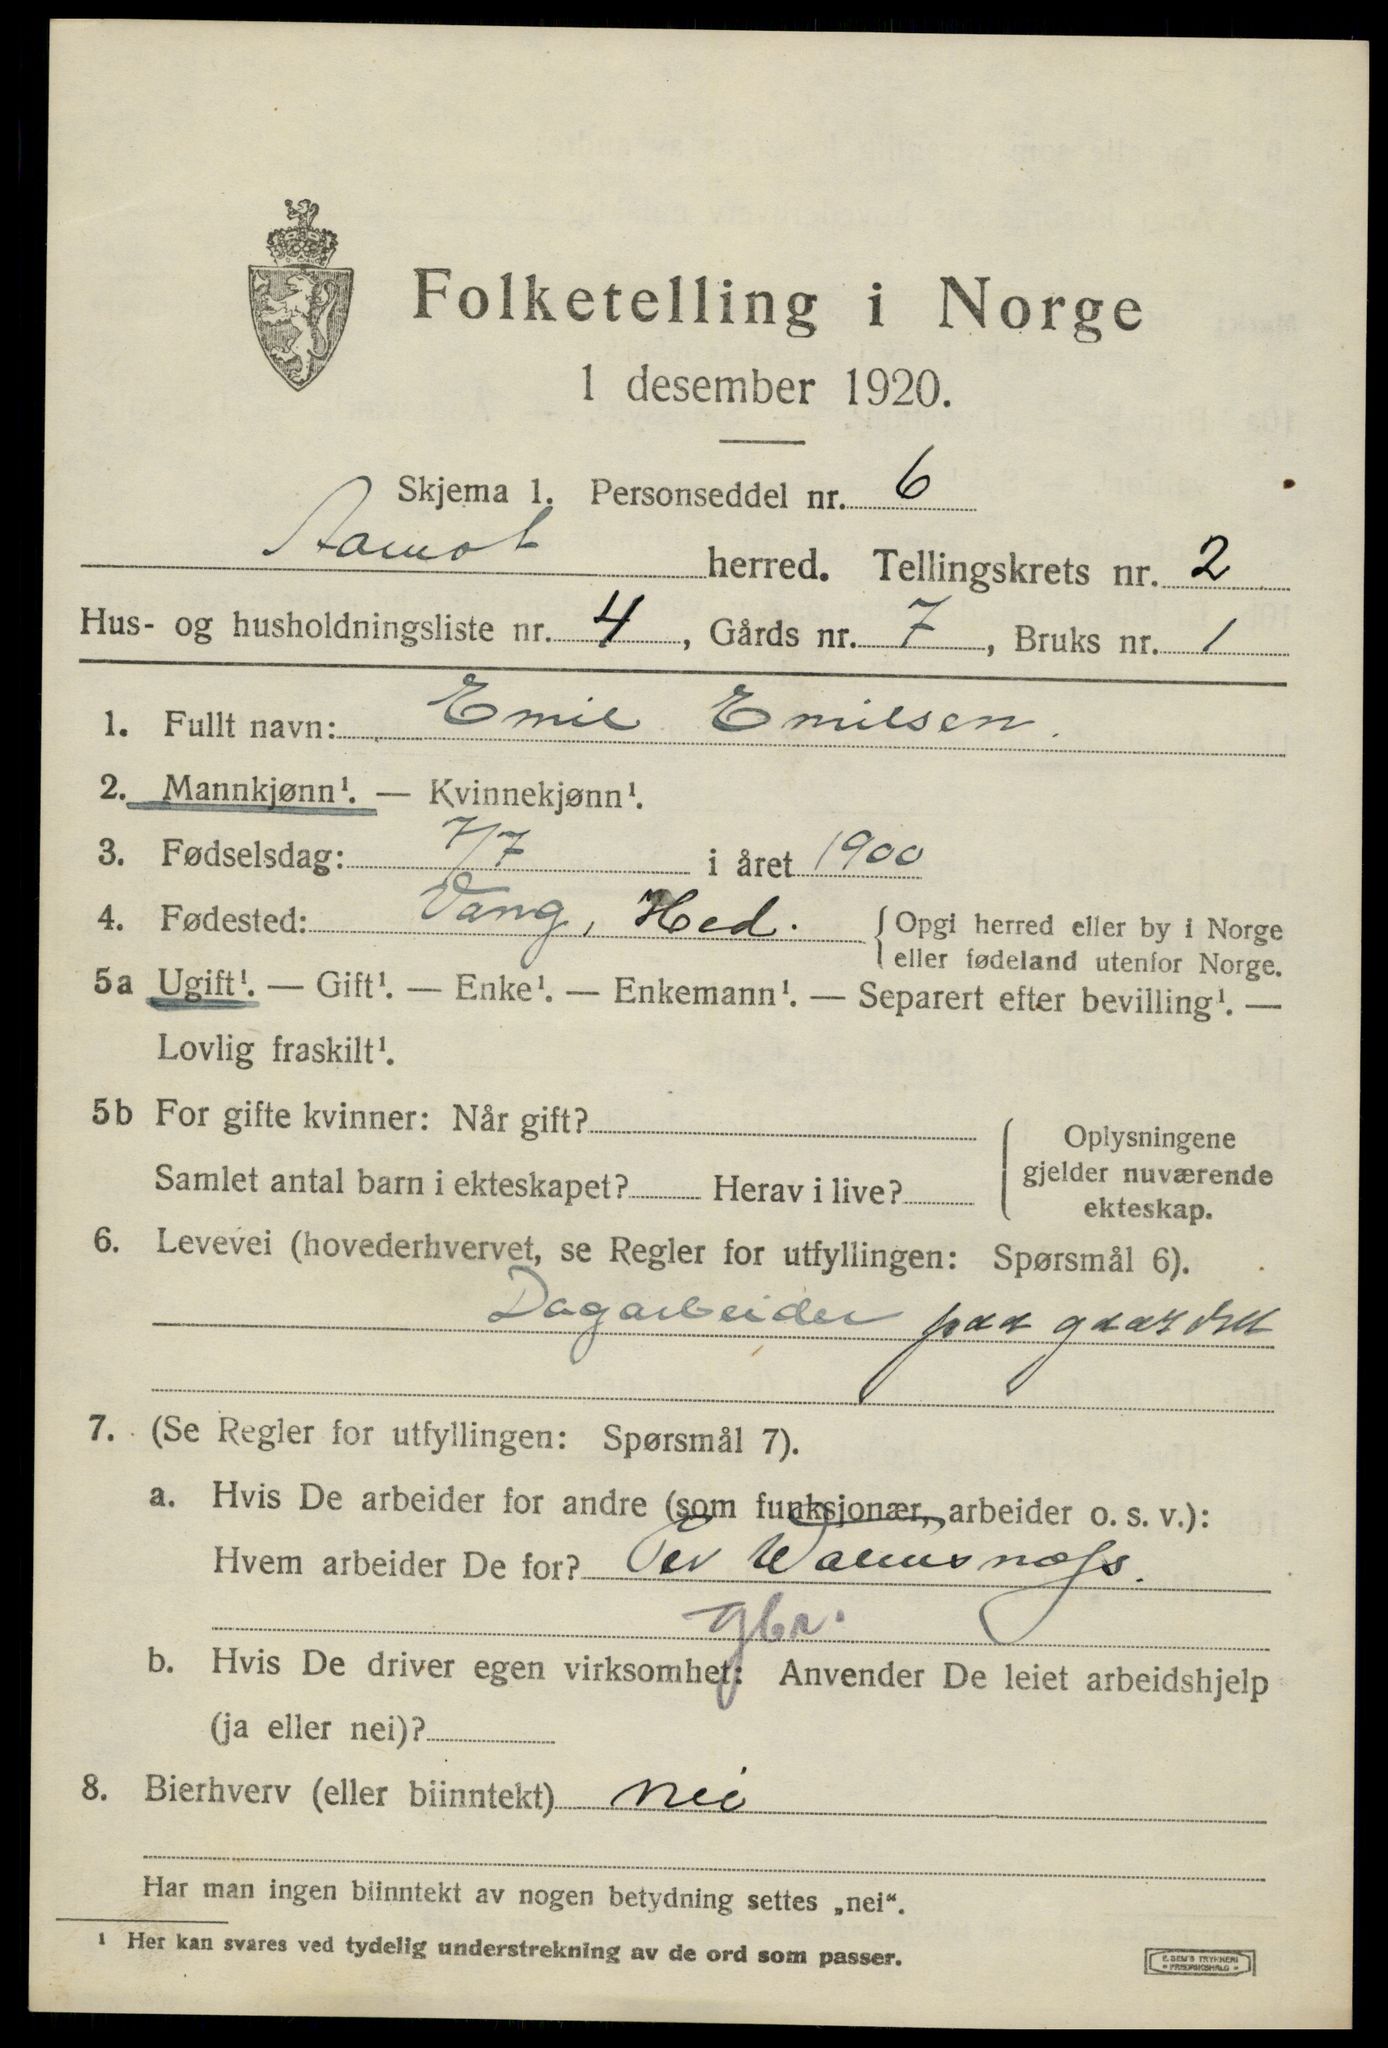 Folketelling i Norge
1 desember 1920.
Skjema 1. Personseddel nr. 6
Aamot herred. Tellingskrets nr. 2
Hus- og husholdningsliste nr. 4, Gårds nr. 7, Bruks nr. 1
1. Fullt navn: Emil Emilsen.
2. Mannkjønn¹. — Kvinnekjønn¹.
3. Fødselsdag: 7/7 i året 1900
4. Fødested: Vang, Hed. { Opgi herred eller by i Norge
eller fødeland utenfor Norge.
5a Ugift¹. — Gift¹. — Enke¹. — Enkemann¹. — Separert efter bevilling¹. —
Lovlig fraskilt¹.
5b For gifte kvinner: Når gift?
Samlet antal barn i ekteskapet? Herav i live?
Oplysningene
gjelder nuværende
ekteskap.
6. Levevei (hovederhvervet, se Regler for utfyllingen: Spørsmål 6).
Dagarbeider paa gaardsa
7. (Se Regler for utfyllingen: Spørsmål 7).
a. Hvis De arbeider for andre (som funksjonær, arbeider o. s. v.):
Hvem arbeider De for? Per
gbr.
b. Hvis De driver egen virksomhet: Anvender De leiet arbeidshjelp
(ja eller nei)?
8. Bierhverv (eller biinntekt) nei
Har man ingen biinntekt av nogen betydning settes „nei“.
¹ Her kan svares ved tydelig understrekning av de ord som passer.
E. SEM'S TRYKKERI
FREDRIKSHALD